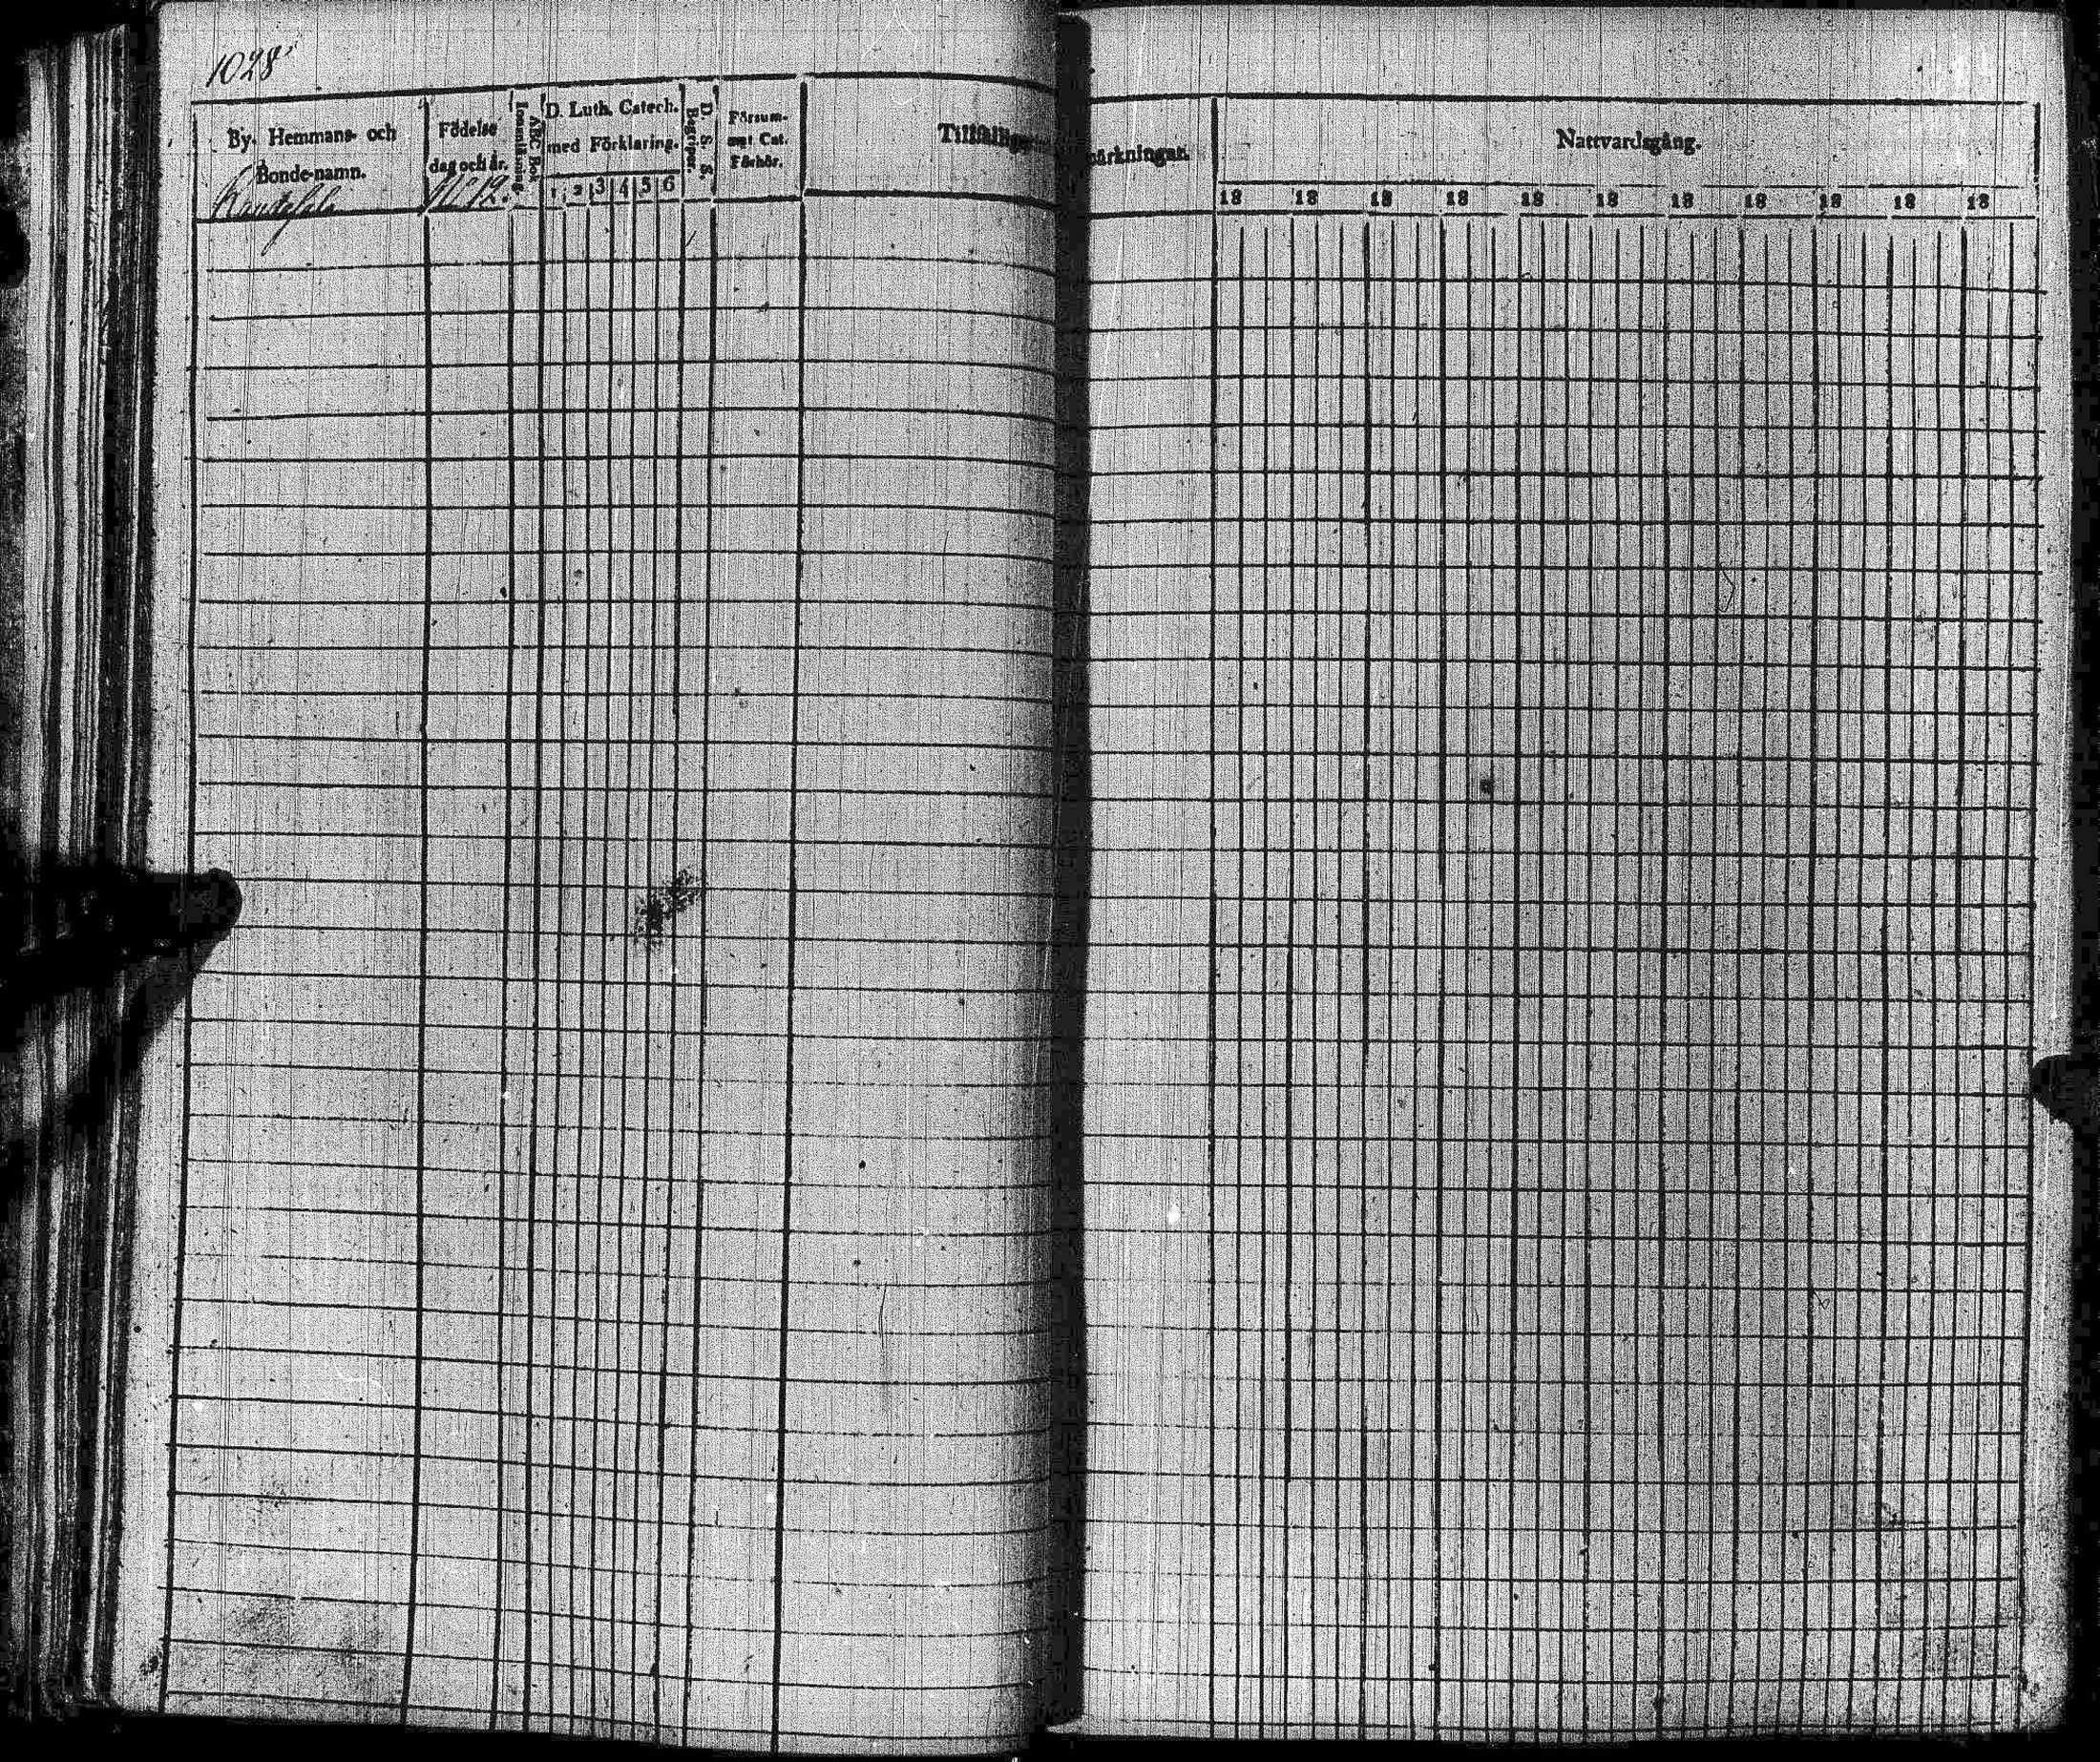 1028
By, Hemmans- och
Bonde-namn.
Födelse
dag och år.
N:o 12.
ABC Bok
Innanläsning.
D. Luth. Catech.
med Förklaring.
1 2 3 4 5 6
D. S. S.
Begriper.
Försum-
mat Cat.
Förhör.
Nattvardsgång.
18 18 18 18 18 18 18 18 18 18 18